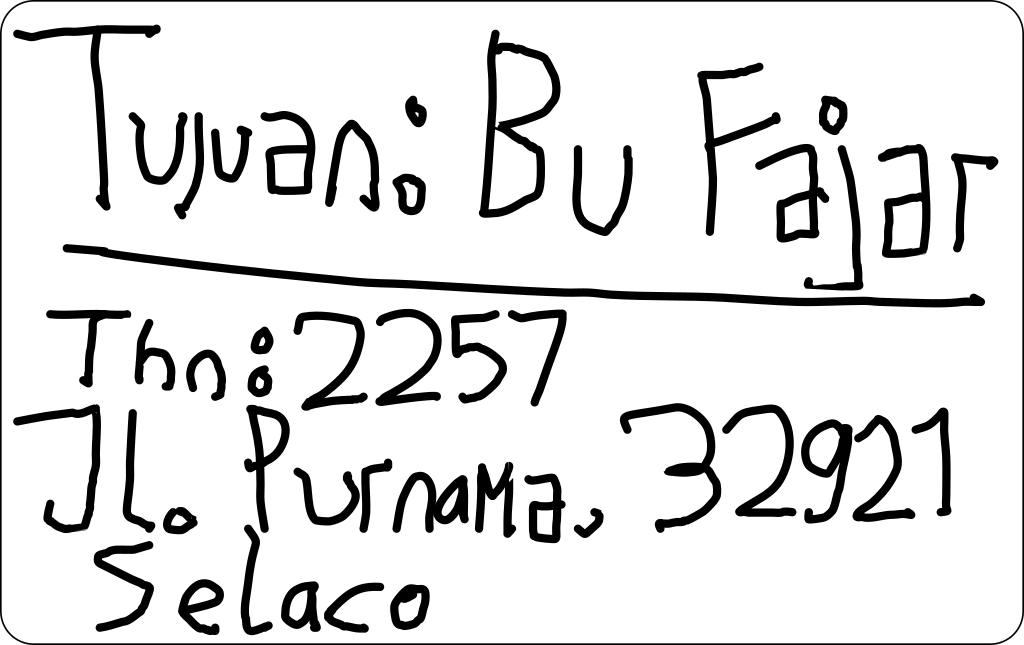 Tujuan: Bu Fajar
Thn: 2257
Jl. Purnama, 32921
Selaco